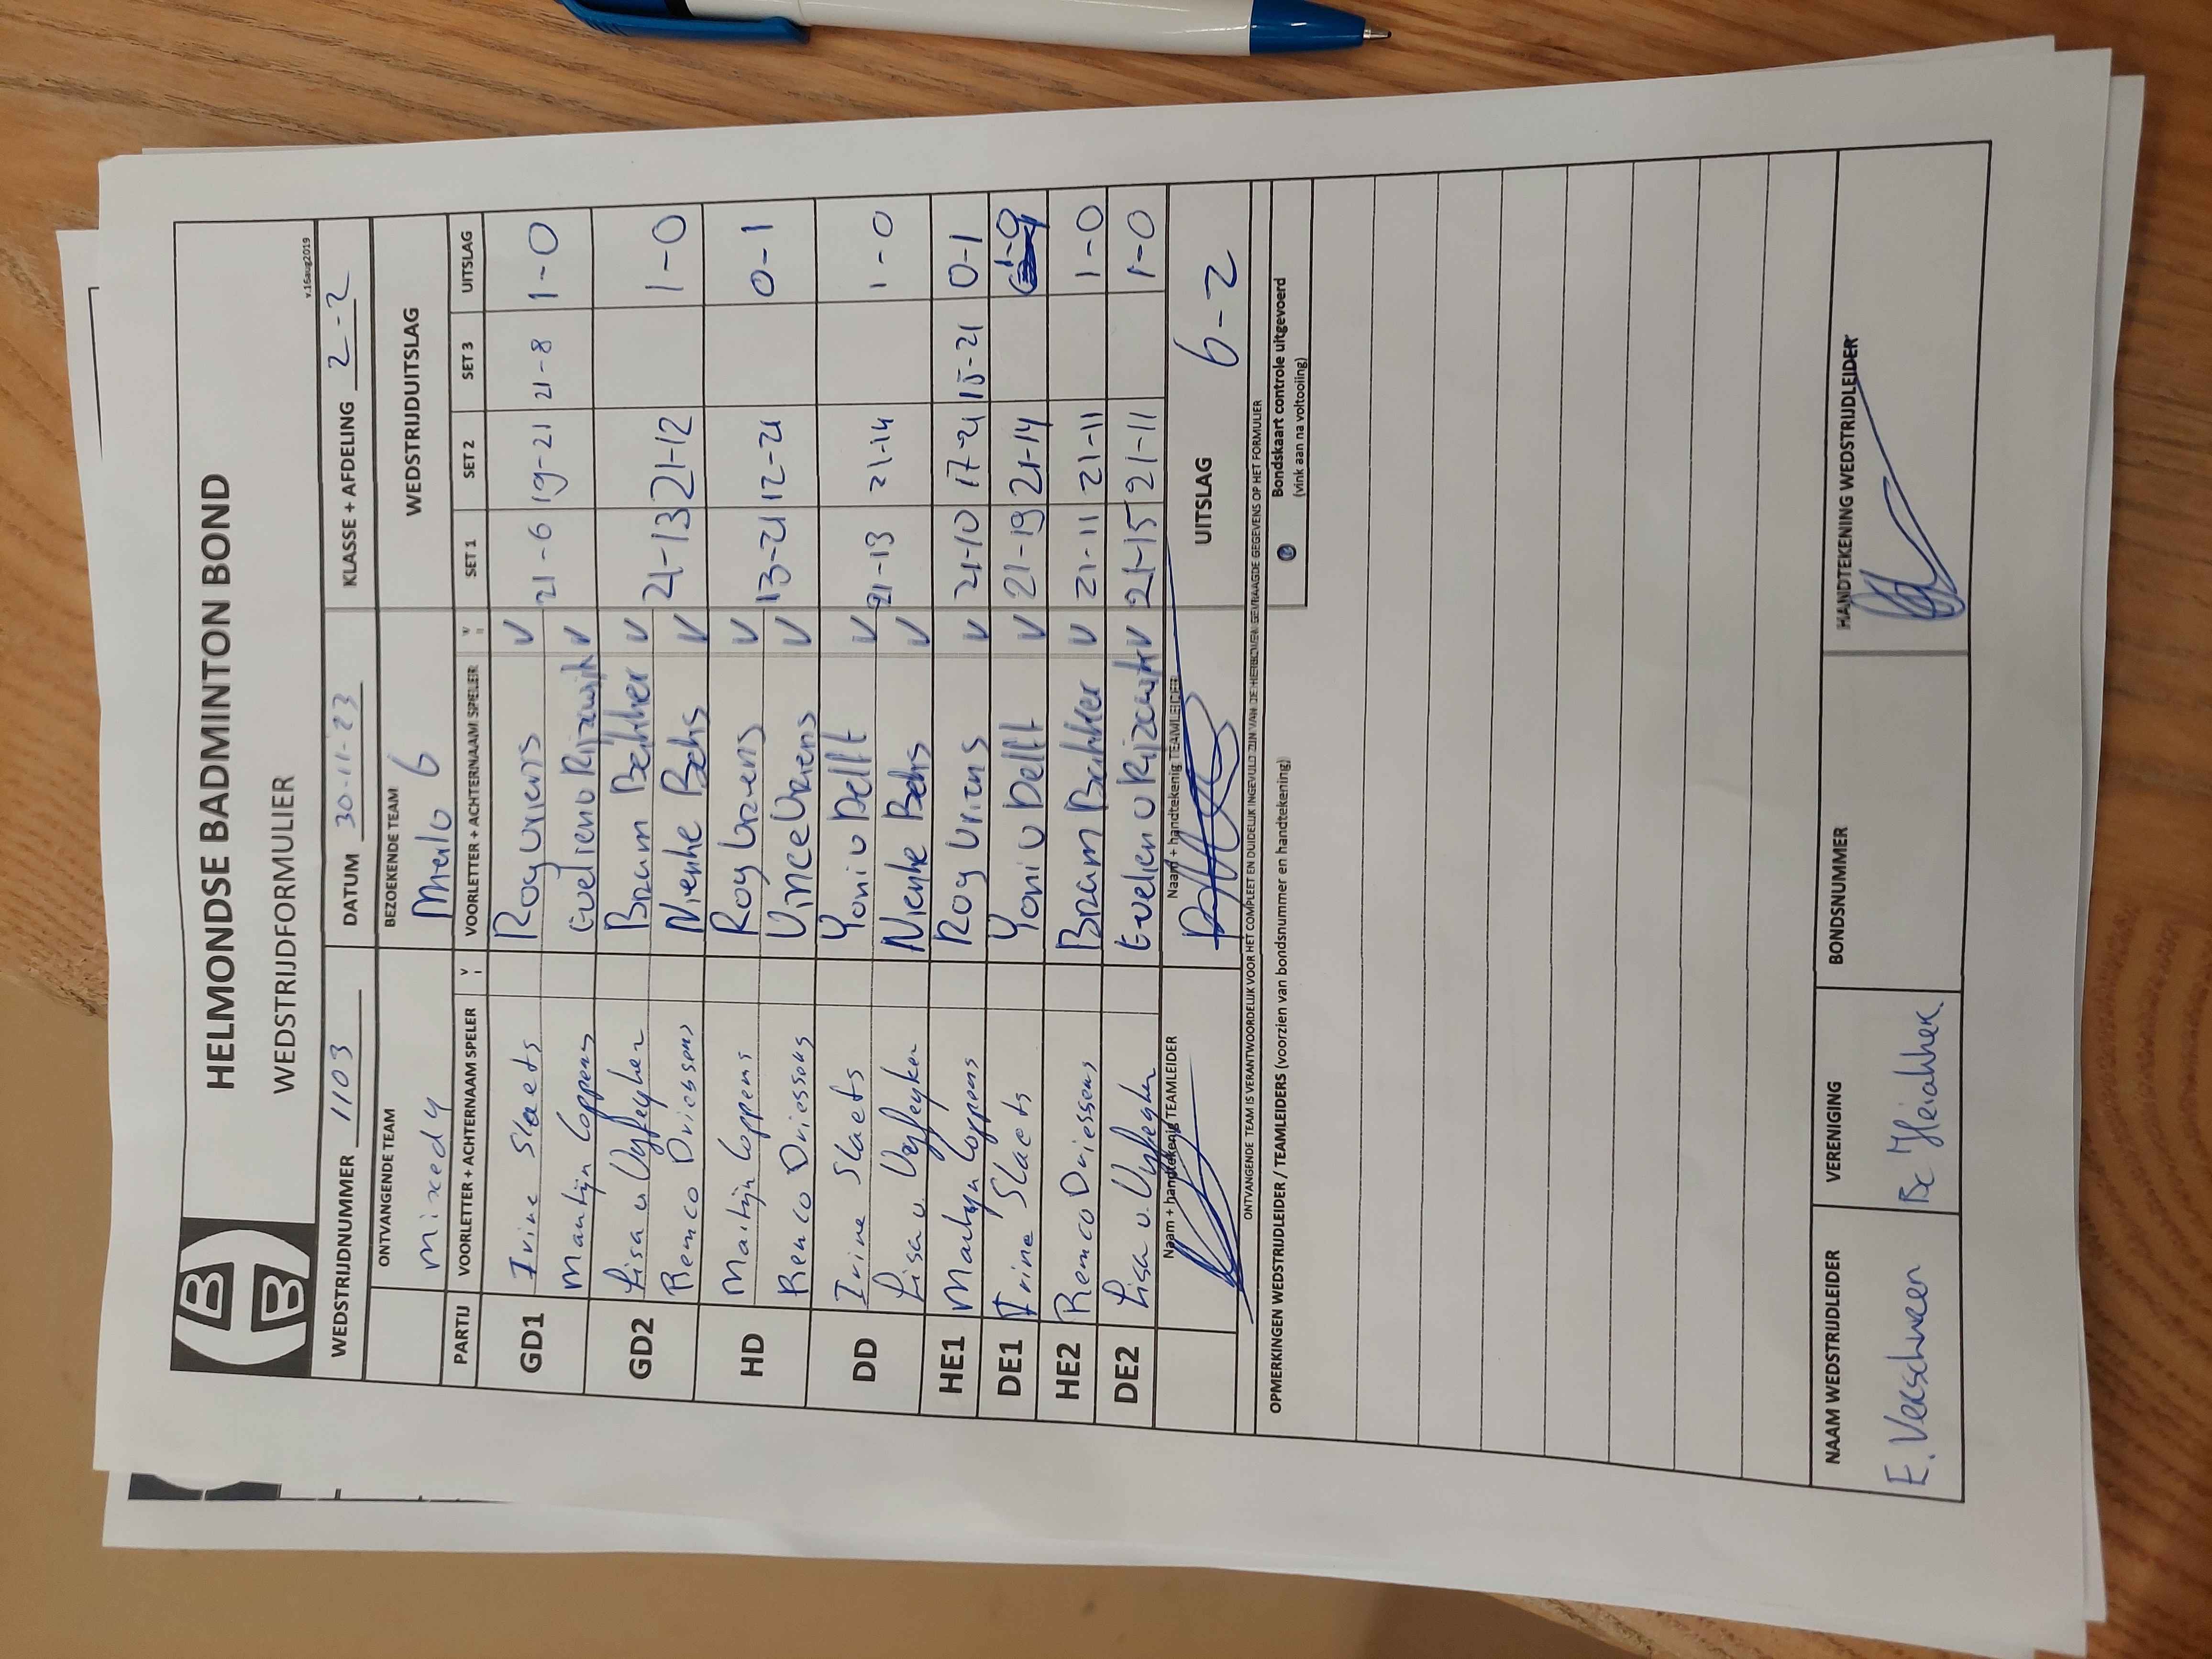 HELMONDSE BADMINTON BOND
WEDSTRIJDFORMULIER
v.16aug2019
WEDSTRIJDNUMMER 1103 DATUM 30-11-'23 KLASSE + AFDELING 2-2
ONTVANGENDE TEAM BEZOEKENDE TEAM WEDSTRIJDUITSLAG
mixed 4 Mierlo 6
PARTIJ VOORLETTER + ACHTERNAAM SPELER V VOORLETTER + ACHTERNAAM SPELER V SET 1 SET 2 SET 3 UITSLAG
GD1 Irine Slaets Roy Vriens V 21-6 19-21 21-8 1-0
Martijn Coppens Evelien v Rijzewijk V
GD2 Lisa v Vyfeyker Bram Bakker V 21-13 21-12 1-0
Remco Driessens Nienke Beks V
HD Martijn Coppens Roy Vriens V 13-21 12-21 0-1
Remco Driessens Vince Vriens V
DD Irine Slaets Yoni v Delft V 21-13 21-14 1-0
Lisa v. Vyfeyker Nienke Beks V
HE1 Martijn Coppens Roy Vriens V 21-10 17-21 15-21 0-1
DE1 Irine Slaets Yoni v Delft V 21-19 21-14 1-0
HE2 Remco Driessens Bram Bakker V 21-11 21-11 1-0
DE2 Lisa v. Vyfeyker Evelien v Rijzewijk V 21-15 21-11 1-0
Naam + handtekenig TEAMLEIDER Naam + handtekenig TEAMLEIDER UITSLAG 6-2
ONTVANGENDE TEAM IS VERANTWOORDELIJK VOOR HET COMPLEET EN DUIDELIJK INGEVULD ZIJN VAN DE HIERBOVEN GEVRAAGDE GEGEVENS OP HET FORMULIER
OPMERKINGEN WEDSTRIJDLEIDER / TEAMLEIDERS (voorzien van bondsnummer en handtekening) Bondskaart controle uitgevoerd
(vink aan na voltooiing)
NAAM WEDSTRIJDLEIDER VERENIGING BONDSNUMMER HANDTEKENING WEDSTRIJDLEIDER
E. Verschuren BC Mierlo